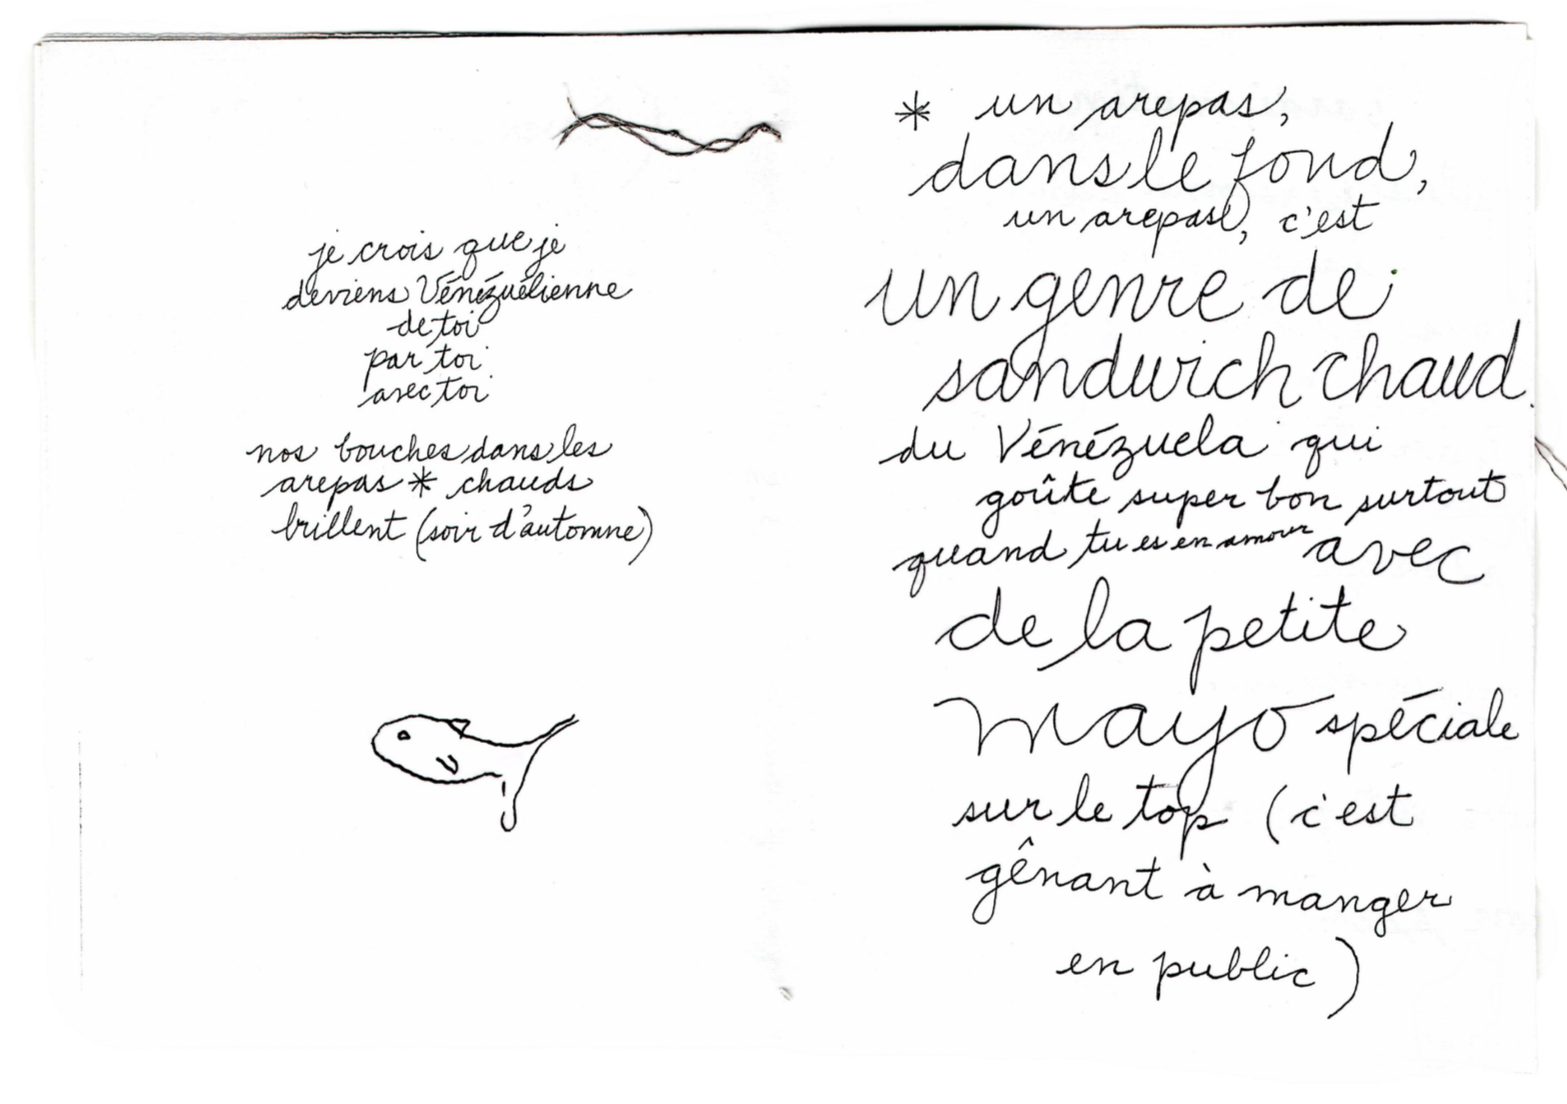 je crois que je
deviens Vénézuélienne
de toi
par toi
avec toi
nos bouches dans les
arepas * chauds
brillent (soir d'automne)
* un arepas,
dans le fond,
un arepas, c'est
un genre de
sandwich chaud
du Vénézuela qui
goûte super bon surtout
quand tu es en amour avec
de la petite
mayo spéciale
sur le top (c'est
gênant à manger
en public)